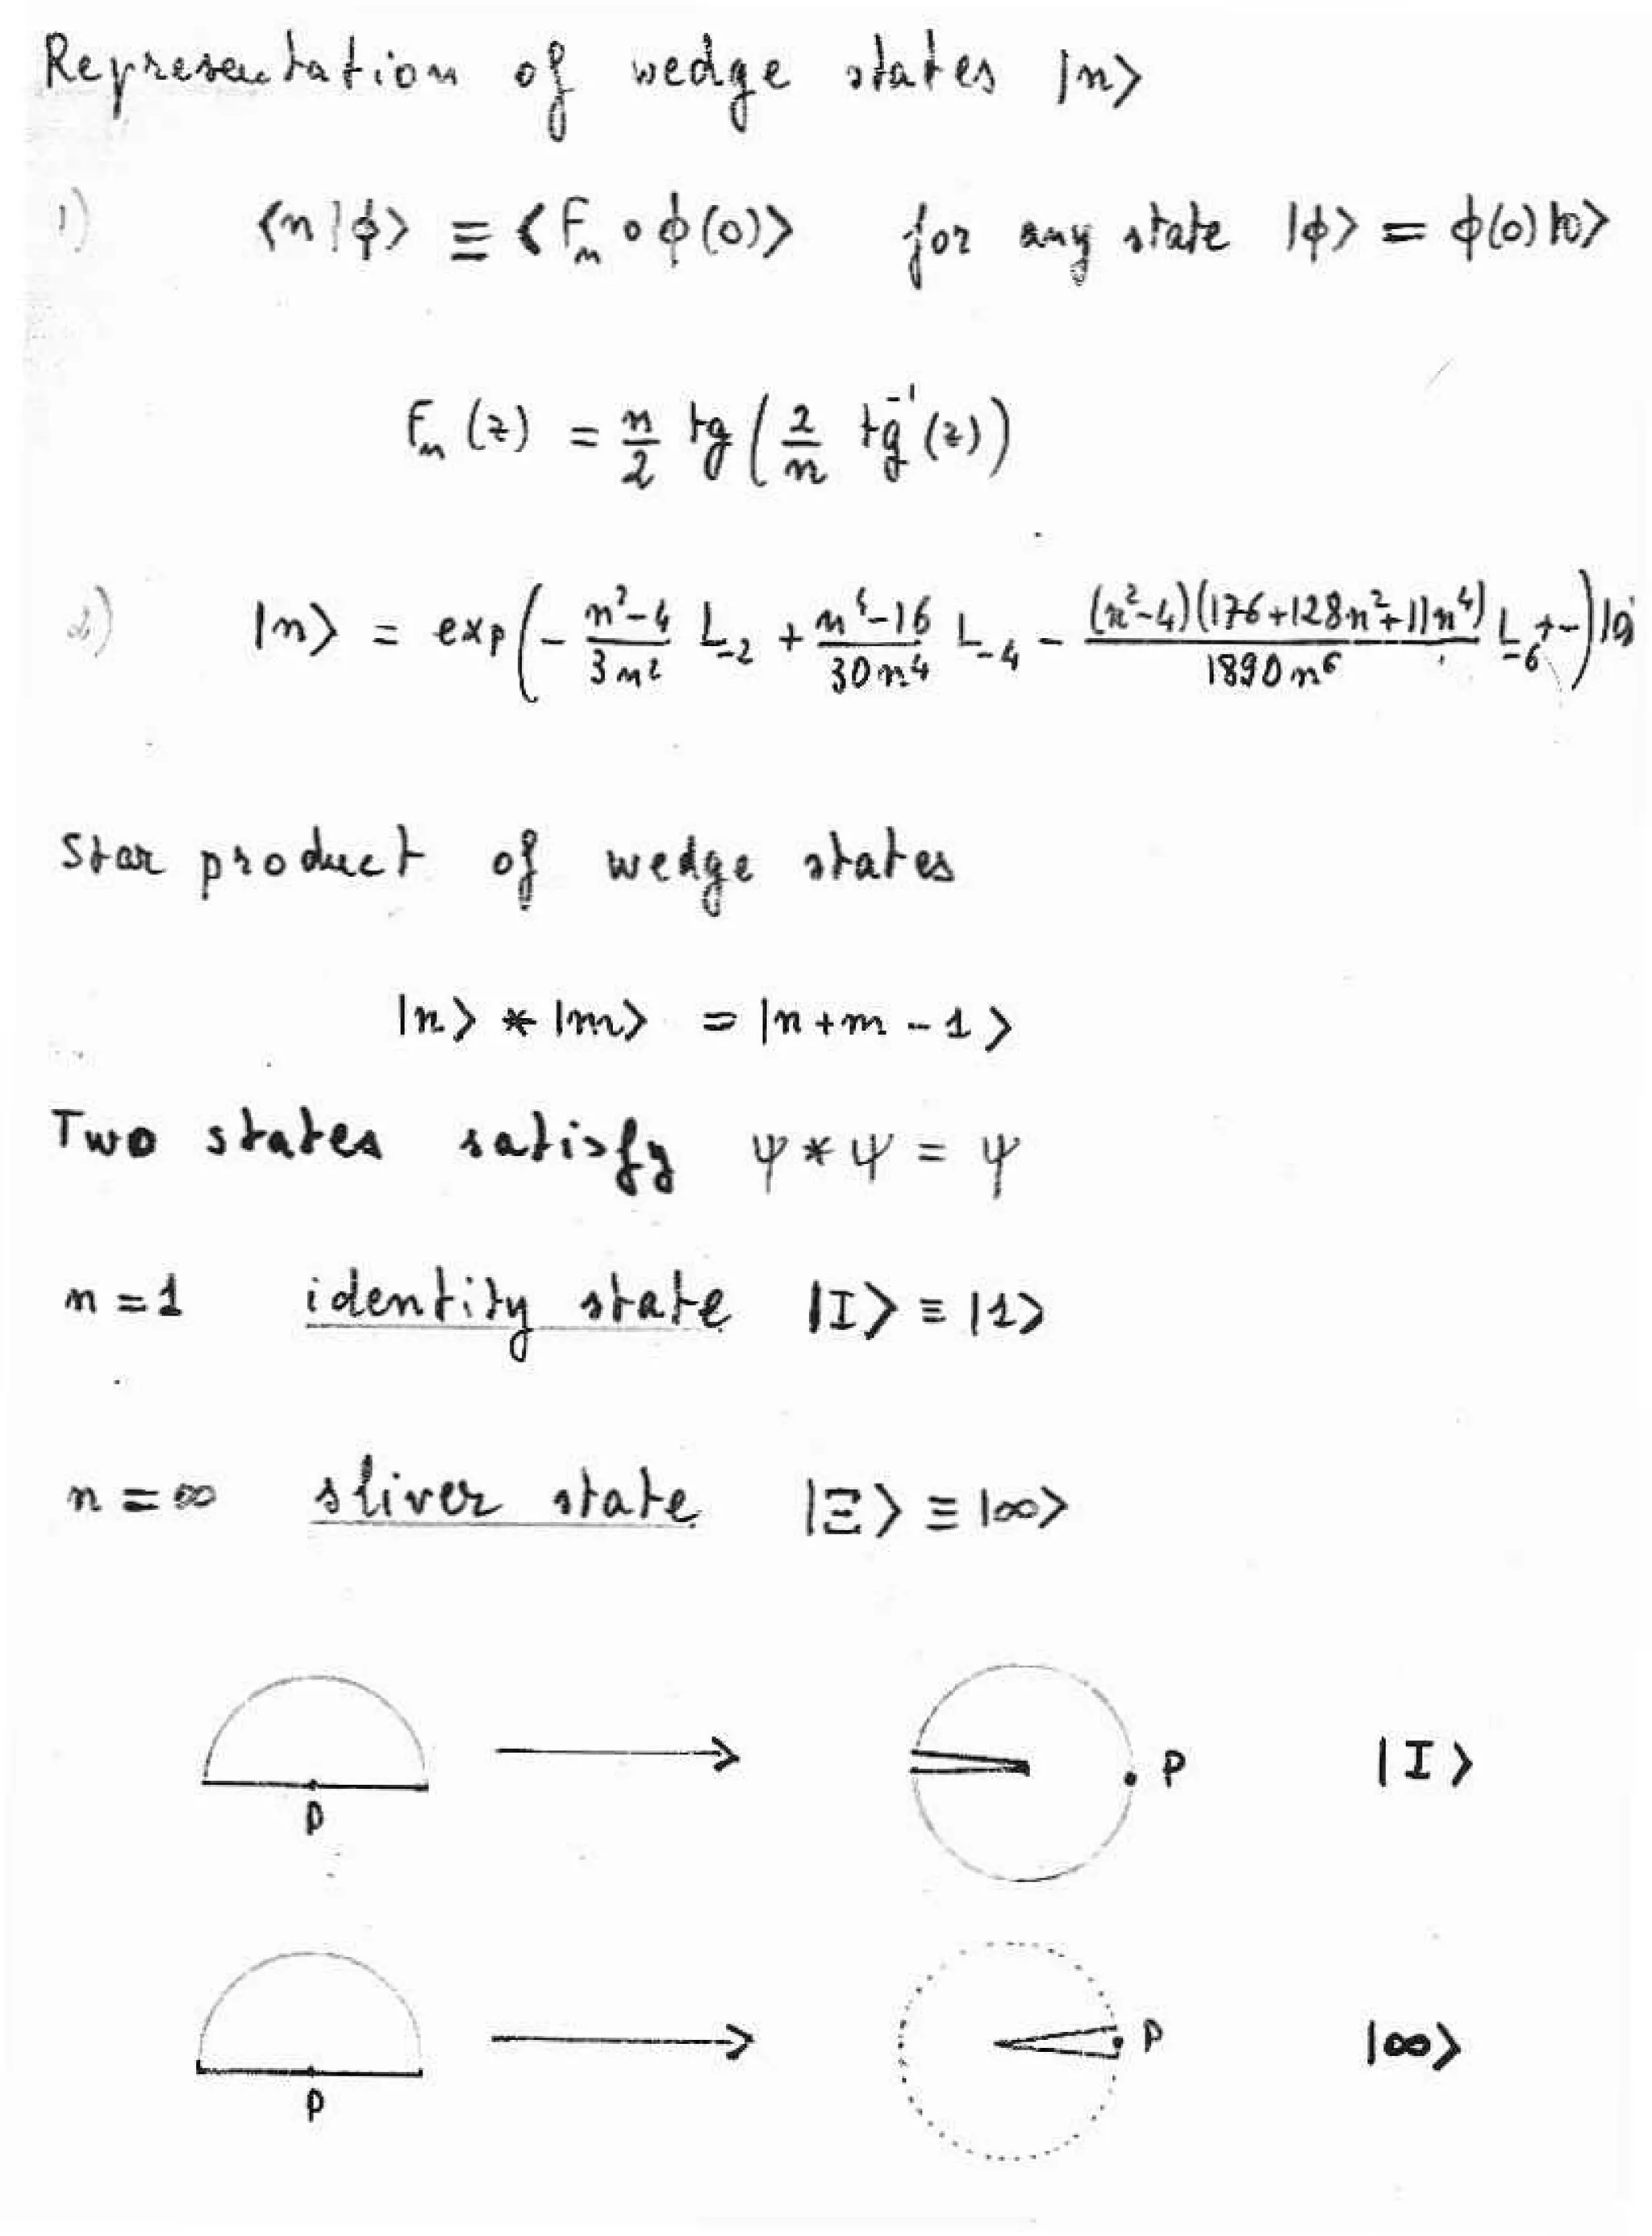 Representation of wedge states |n⟩
1) ⟨n|ϕ⟩ ≡ ⟨Fₙ ∘ ϕ(0)⟩ for any state |ϕ⟩ = ϕ(0)|0⟩
Fₙ(z) = n/2 tg(2/n tg⁻¹(z))
2) |n⟩ = exp(- (n²-4)/(3n²) L₋₂ + (n⁴-16)/(30n⁴) L₋₄ - (n²-4)(176+128n²+11n⁴)/(1890n⁶) L₋₆ + -)|0⟩
Star product of wedge states
|n⟩ * |m⟩ = |n+m-1⟩
Two states satisfy ψ * ψ = ψ
n = 1 identity state |I⟩ ≡ |1⟩
n = ∞ sliver state |Ξ⟩ ≡ |∞⟩
P P |I⟩
P P |∞⟩